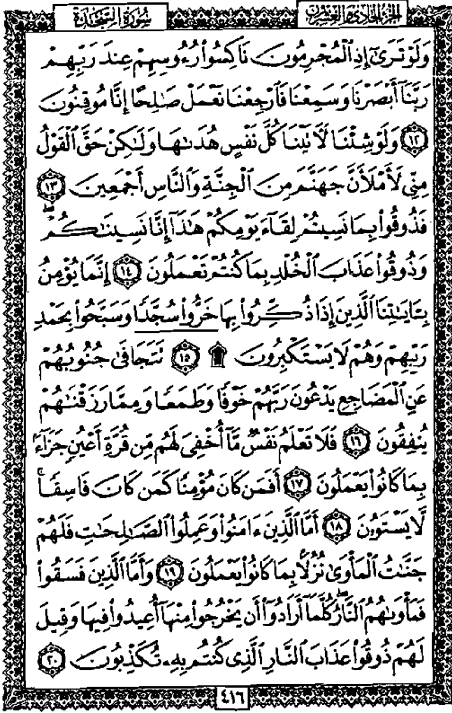 الجزء الحادي والعشرون
سُورَةُ السَّجْدَةِ
وَلَوْ تَرَىٰٓ إِذِ ٱلْمُجْرِمُونَ نَاكِسُوا۟ رُءُوسِهِمْ عِندَ رَبِّهِمْ
رَبَّنَآ أَبْصَرْنَا وَسَمِعْنَا فَٱرْجِعْنَا نَعْمَلْ صَٰلِحًا إِنَّا مُوقِنُونَ
١٢ وَلَوْ شِئْنَا لَءَاتَيْنَا كُلَّ نَفْسٍ هُدَىٰهَا وَلَٰكِنْ حَقَّ ٱلْقَوْلُ
مِنِّى لَأَمْلَأَنَّ جَهَنَّمَ مِنَ ٱلْجِنَّةِ وَٱلنَّاسِ أَجْمَعِينَ ١٣
فَذُوقُوا۟ بِمَا نَسِيتُمْ لِقَآءَ يَوْمِكُمْ هَٰذَآ إِنَّا نَسِينَٰكُمْ ۖ
وَذُوقُوا۟ عَذَابَ ٱلْخُلْدِ بِمَا كُنتُمْ تَعْمَلُونَ ١٤ إِنَّمَا يُؤْمِنُ
بِـَٔايَٰتِنَا ٱلَّذِينَ إِذَا ذُكِّرُوا۟ بِهَا خَرُّوا۟ سُجَّدًا وَسَبَّحُوا۟ بِحَمْدِ
رَبِّهِمْ وَهُمْ لَا يَسْتَكْبِرُونَ ۩ ١٥ تَتَجَافَىٰ جُنُوبُهُمْ
عَنِ ٱلْمَضَاجِعِ يَدْعُونَ رَبَّهُمْ خَوْفًا وَطَمَعًا وَمِمَّا رَزَقْنَٰهُمْ
يُنفِقُونَ ١٦ فَلَا تَعْلَمُ نَفْسٌ مَّآ أُخْفِىَ لَهُم مِّن قُرَّةِ أَعْيُنٍ جَزَآءًۢ
بِمَا كَانُوا۟ يَعْمَلُونَ ١٧ أَفَمَن كَانَ مُؤْمِنًا كَمَن كَانَ فَاسِقًا ۚ
لَّا يَسْتَوُۥنَ ١٨ أَمَّا ٱلَّذِينَ ءَامَنُوا۟ وَعَمِلُوا۟ ٱلصَّٰلِحَٰتِ فَلَهُمْ
جَنَّٰتُ ٱلْمَأْوَىٰ نُزُلًۢا بِمَا كَانُوا۟ يَعْمَلُونَ ١٩ وَأَمَّا ٱلَّذِينَ فَسَقُوا۟
فَمَأْوَىٰهُمُ ٱلنَّارُ ۖ كُلَّمَآ أَرَادُوٓا۟ أَن يَخْرُجُوا۟ مِنْهَآ أُعِيدُوا۟ فِيهَا وَقِيلَ
لَهُمْ ذُوقُوا۟ عَذَابَ ٱلنَّارِ ٱلَّذِى كُنتُم بِهِۦ تُكَذِّبُونَ ٢٠
٤١٦